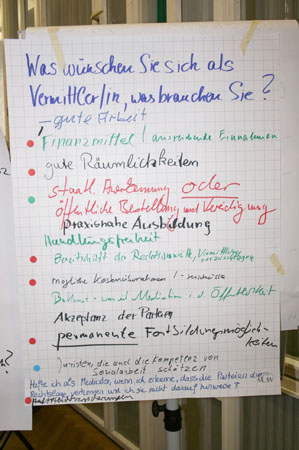 Was wünschen Sie sich als
Vermittler/in, was brauchen Sie?
- gute Arbeit
Finanzmittel / ausreichende Einnahmen
gute Räumlichkeiten
staatl. Anerkennung oder
öffentliche Bestellung und Vereidigung
praxisnahe Ausbildung
Handlungsfreiheit
Bereitschaft der Rechtsanwälte,
mögliche Kostenübernahmen / -zuschüsse
Mediation i. d. Öffentlichkeit
Akzeptanz der Parteien
permanente Fortbildungsmöglich-
keiten
Juristen, die und die Kompetenz von
Sozialarbeit schätzen
Hafte ich als Mediator, wenn ich erkenne, dass die Parteien die
Rechtslage verkennen und ich sie nicht darauf hinweise?